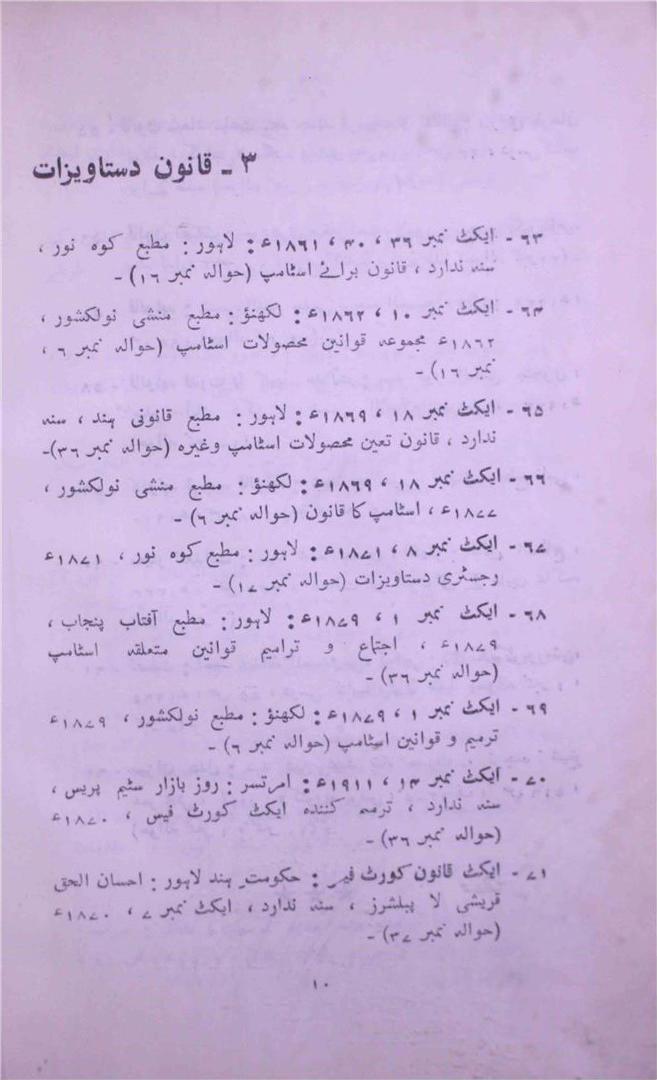 ۳ ۔ قانون دستاویزات
۶۳ ۔ ایکٹ نمبر ۳۶ ، ۴۰ ، ۱۸۶۱ء : لاہور : مطبع کوہ نور ،
سنہ ندارد ، قانون برائے اسٹامپ (حوالہ نمبر ۱۶) ۔
۶۴ ۔ ایکٹ نمبر ۱۰ ، ۱۸۶۲ء : لکھنؤ : مطبع منشی نولکشور ،
۱۸۶۲ء مجموعہ قوانین محصولات اسٹامپ (حوالہ نمبر ۶ ،
نمبر ۱۶) ۔
۶۵ ۔ ایکٹ نمبر ۱۸ ، ۱۸۶۹ء : لاہور : مطبع قانونی ہند ، سنہ
ندارد ، قانون تعین محصولات اسٹامپ وغیرہ (حوالہ نمبر ۳۶)۔
۶۶ ۔ ایکٹ نمبر ۱۸ ، ۱۸۶۹ء : لکھنؤ : مطبع منشی نولکشور ،
۱۸۷۷ء ، اسٹامپ کا قانون (حوالہ نمبر ۶) ۔
۶۷ ۔ ایکٹ نمبر ۸ ، ۱۸۷۱ء : لاہور : مطبع کوہ نور ، ۱۸۷۱ء
رجسٹری دستاویزات (حوالہ نمبر ۱۷) ۔
۶۸ ۔ ایکٹ نمبر ۱ ، ۱۸۷۹ء : لاہور : مطبع آفتاب پنجاب ،
۱۸۷۹ء ، اجتماع و ترامیم قوانین متعلقہ اسٹامپ
(حوالہ نمبر ۳۶) ۔
۶۹ ۔ ایکٹ نمبر ۱ ، ۱۸۷۹ء : لکھنؤ : مطبع نولکشور ، ۱۸۷۹ء
ترمیم و قوانین اسٹامپ (حوالہ نمبر ۶) ۔
۷۰ ۔ ایکٹ نمبر ۱۴ ، ۱۹۱۱ء : امرتسر : روز بازار سٹیم پریس ،
سنہ ندارد ، ترمیم کنندہ ایکٹ کورٹ فیس ، ۱۸۷۰ء
(حوالہ نمبر ۳۶) ۔
۷۱ ۔ ایکٹ قانون کورٹ فیس : حکومت ہند لاہور : احسان الحق
قریشی لا پبلشرز ، سنہ ندارد ، ایکٹ نمبر ۷ ، ۱۸۷۰ء
(حوالہ نمبر ۳۷) ۔
۱۰